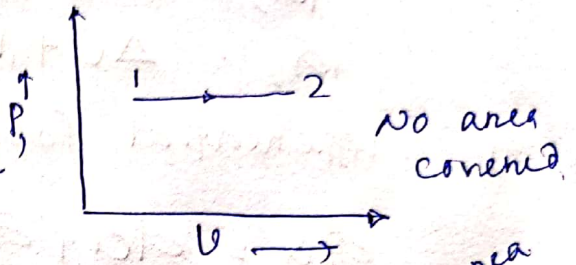 1 2
P,
No area
covered
V